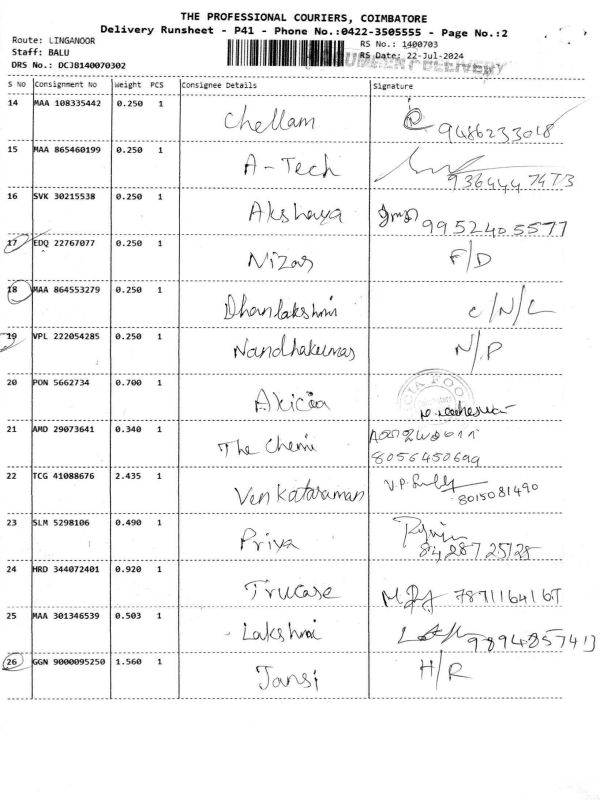 THE PROFESSIONAL COURIERS, COIMBATORE
Delivery Runsheet - P41 - Phone No.:0422-3505555 - Page No.:2
Route: LINGANOOR RS No.: 1400703
Staff: BALU RS Date: 22-Jul-2024
DRS No.: DCJB140070302 DELIVERY
S No Consignment No Weight PCS Consignee Details Signature
14 MAA 108335442 0.250 1 Chellam 9486233018
15 MAA 865460199 0.250 1 A-Tech 9364447473
16 SVK 30215538 0.250 1 Akshaya 9952405577
17 EDQ 22767077 0.250 1 Nizar F/D
18 MAA 864553279 0.250 1 Dhanlakshmi C/N/L
19 VPL 222054285 0.250 1 Nandhakumar N/P
20 PON 5662734 0.700 1 Akicia
21 AMD 29073641 0.340 1 The Chemi 8056450699
22 TCG 41088676 2.435 1 Venkataraman V.P. 8015081490
23 SLM 5298106 0.490 1 Priya 8428725128
24 HRD 344072401 0.920 1 Trucase 7871164167
25 MAA 301346539 0.503 1 Lakshmi 9894857413
26 GGN 9000095250 1.560 1 Jansi H/R